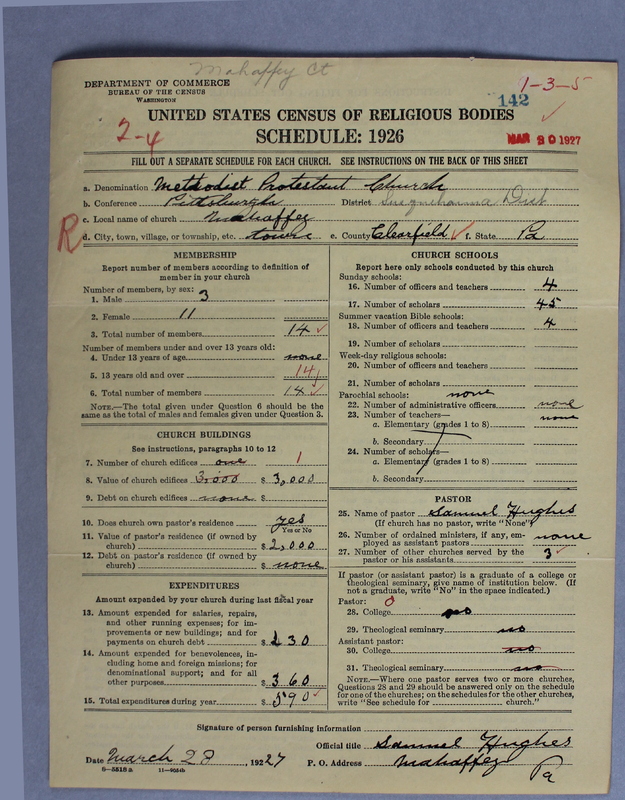 Mahaffey Ct
DEPARTMENT OF COMMERCE
BUREAU OF THE CENSUS
WASHINGTON
1-3-5
142
UNITED STATES CENSUS OF RELIGIOUS BODIES
2-4
SCHEDULE: 1926
MAR 30 1927
FILL OUT A SEPARATE SCHEDULE FOR EACH CHURCH. SEE INSTRUCTIONS ON THE BACK OF THIS SHEET
a. Denomination Methodist Protestant Church
b. Conference Pittsburgh District Susquehanna Dist
c. Local name of church Mahaffey
R
d. City, town, village, or township, etc. town e. County Clearfield f. State Pa
MEMBERSHIP
Report number of members according to definition of
member in your church
Number of members, by sex:
1. Male 3
2. Female 11
3. Total number of members 14
Number of members under and over 13 years old:
4. Under 13 years of age none
5. 13 years old and over 14
6. Total number of members 14
NOTE.—The total given under Question 6 should be the
same as the total of males and females given under Question 3.
CHURCH BUILDINGS
See instructions, paragraphs 10 to 12
7. Number of church edifices one 1
8. Value of church edifices 3,000 $ 3,000
9. Debt on church edifices none $
10. Does church own pastor's residence yes
Yes or No
11. Value of pastor's residence (if owned by
church) $ 2,000
12. Debt on pastor's residence (if owned by
church) $ none
EXPENDITURES
Amount expended by your church during last fiscal year
13. Amount expended for salaries, repairs,
and other running expenses; for im-
provements or new buildings; and for
payments on church debt $ 230
14. Amount expended for benevolences, in-
cluding home and foreign missions; for
denominational support; and for all
other purposes $ 360
15. Total expenditures during year $ 590
CHURCH SCHOOLS
Report here only schools conducted by this church
Sunday schools:
16. Number of officers and teachers 4
17. Number of scholars 45
Summer vacation Bible schools:
18. Number of officers and teachers 4
19. Number of scholars
Week-day religious schools:
20. Number of officers and teachers
21. Number of scholars
Parochial schools: none
22. Number of administrative officers none
23. Number of teachers— none
a. Elementary (grades 1 to 8)
b. Secondary
24. Number of scholars—
a. Elementary (grades 1 to 8)
b. Secondary
PASTOR
25. Name of pastor Samuel Hughes
(If church has no pastor, write "None")
26. Number of ordained ministers, if any, em-
ployed as assistant pastors none
27. Number of other churches served by the
pastor or his assistants 3
If pastor (or assistant pastor) is a graduate of a college or
theological seminary, give name of institution below. (If
not a graduate, write "No" in the space indicated.)
Pastor: 0
28. College no
29. Theological seminary no
Assistant pastor:
30. College no
31. Theological seminary no
NOTE.—Where one pastor serves two or more churches,
Questions 28 and 29 should be answered only on the schedule
for one of the churches; on the schedules for the other churches,
write "See schedule for church."
Signature of person furnishing information
Official title Samuel Hughes
Date March 28, 1927 P. O. Address Mahaffey
Pa
8—5518a 11—9054b